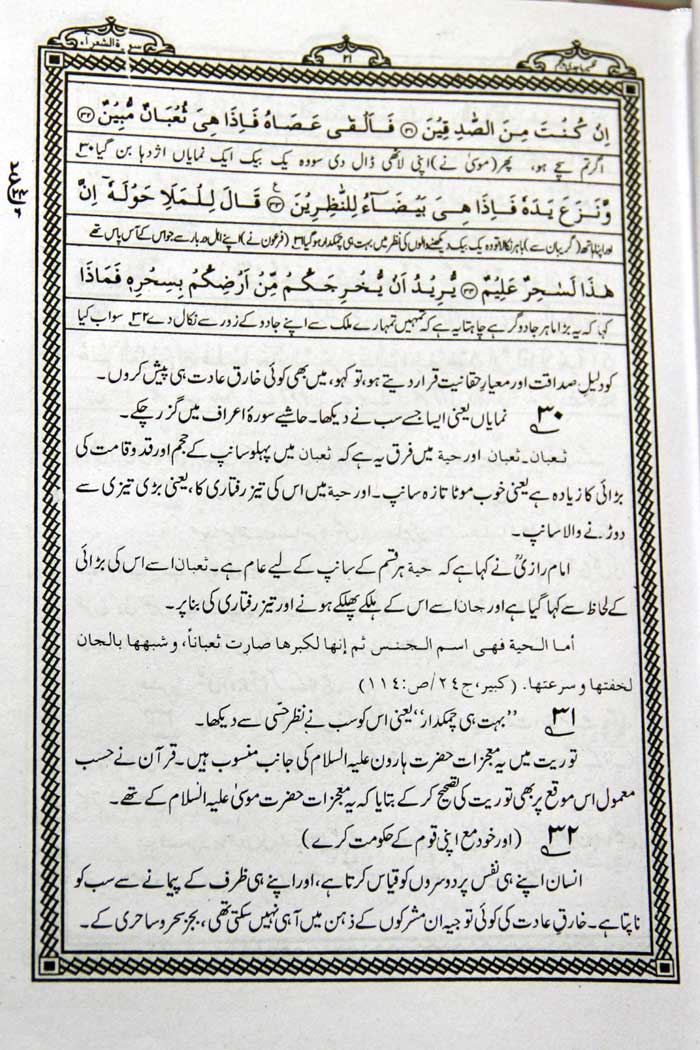 سورة الشعرآء
۲۱
اِنْ كُنْتَ مِنَ الصّٰدِقِيْنَ ﴿۳۱﴾ فَاَلْقٰى عَصَاهُ فَاِذَا هِىَ ثُعْبَانٌ مُّبِيْنٌ ﴿۳۲﴾
اگر تم سچے ہو، پھر (موسیٰ نے) اپنی لاٹھی ڈال دی سووہ یک بیک ایک نمایاں اژدہا بن گیا ۳۰
وَّنَزَعَ يَدَهٗ فَاِذَا هِىَ بَيْضَآءُ لِلنّٰظِرِيْنَ ﴿۳۳﴾ ع قَالَ لِلْمَلَاِ حَوْلَهٗٓ اِنَّ
اور اپنا ہاتھ (گریبان سے) باہر نکالا تو وہ یک بیک دیکھنے والوں کی نظر میں بہت ہی چمکدار ہو گیا ۳۱ (فرعون نے) اپنے اہل دربار سے جو اس کے آس پاس تھے
هٰذَا لَسٰحِرٌ عَلِيْمٌ ﴿۳۴﴾ يُّرِيْدُ اَنْ يُّخْرِجَكُمْ مِّنْ اَرْضِكُمْ بِسِحْرِهٖ فَمَاذَا
کہا کہ یہ بڑا ماہر جادوگر ہے چاہتا یہ ہے کہ تمہیں تمہارے ملک سے اپنے جادو کے زور سے نکال دے ۳۲ سو اب کیا
کو دلیل صداقت اور معیار حقانیت قرار دیتے ہو، تو کہو، میں بھی کوئی خارق عادت ہی پیش کروں۔
۳۰ نمایاں یعنی ایسا جسے سب نے دیکھا۔ حاشیے سورۂ اعراف میں گزر چکے۔
ثعبان۔ ثعبان اور حية میں فرق یہ ہے کہ ثعبان میں پہلو سانپ کے حجم اور قد و قامت کی
بڑائی کا زیادہ ہے یعنی خوب موٹا تازہ سانپ۔ اور حية میں اس کی تیز رفتاری کا، یعنی بڑی تیزی سے
دوڑنے والا سانپ۔
امام رازیؒ نے کہا ہے کہ حية ہر قسم کے سانپ کے لیے عام ہے۔ ثعبان اسے اس کی بڑائی
کے لحاظ سے کہا گیا ہے اور جان اسے اس کے ہلکے پھلکے ہونے اور تیز رفتاری کی بنا پر۔
أما الحية فهى اسم الجنس ثم إنها لكبرها صارت ثعباناً، و شبهها بالجان
لخفتها و سرعتها. (كبير، ج ۲۴/ص:۱۱۴)
۳۱ ”بہت ہی چمکدار“، یعنی اس کو سب نے نظر حسّی سے دیکھا۔
توریت میں یہ معجزات حضرت ہارون علیہ السلام کی جانب منسوب ہیں۔ قرآن نے حسب
معمول اس موقع پر بھی توریت کی تصحیح کر کے بتایا کہ یہ معجزات حضرت موسیٰ علیہ السلام کے تھے۔
۳۲ (اور خود مع اپنی قوم کے حکومت کرے)
انسان اپنے ہی نفس پر دوسروں کو قیاس کرتا ہے، اور اپنے ہی ظرف کے پیمانے سے سب کو
ناپتا ہے۔ خارق عادت کی کوئی توجیہ ان مشرکوں کے ذہن میں آ ہی نہیں سکتی تھی، بجز سحر و ساحری کے۔